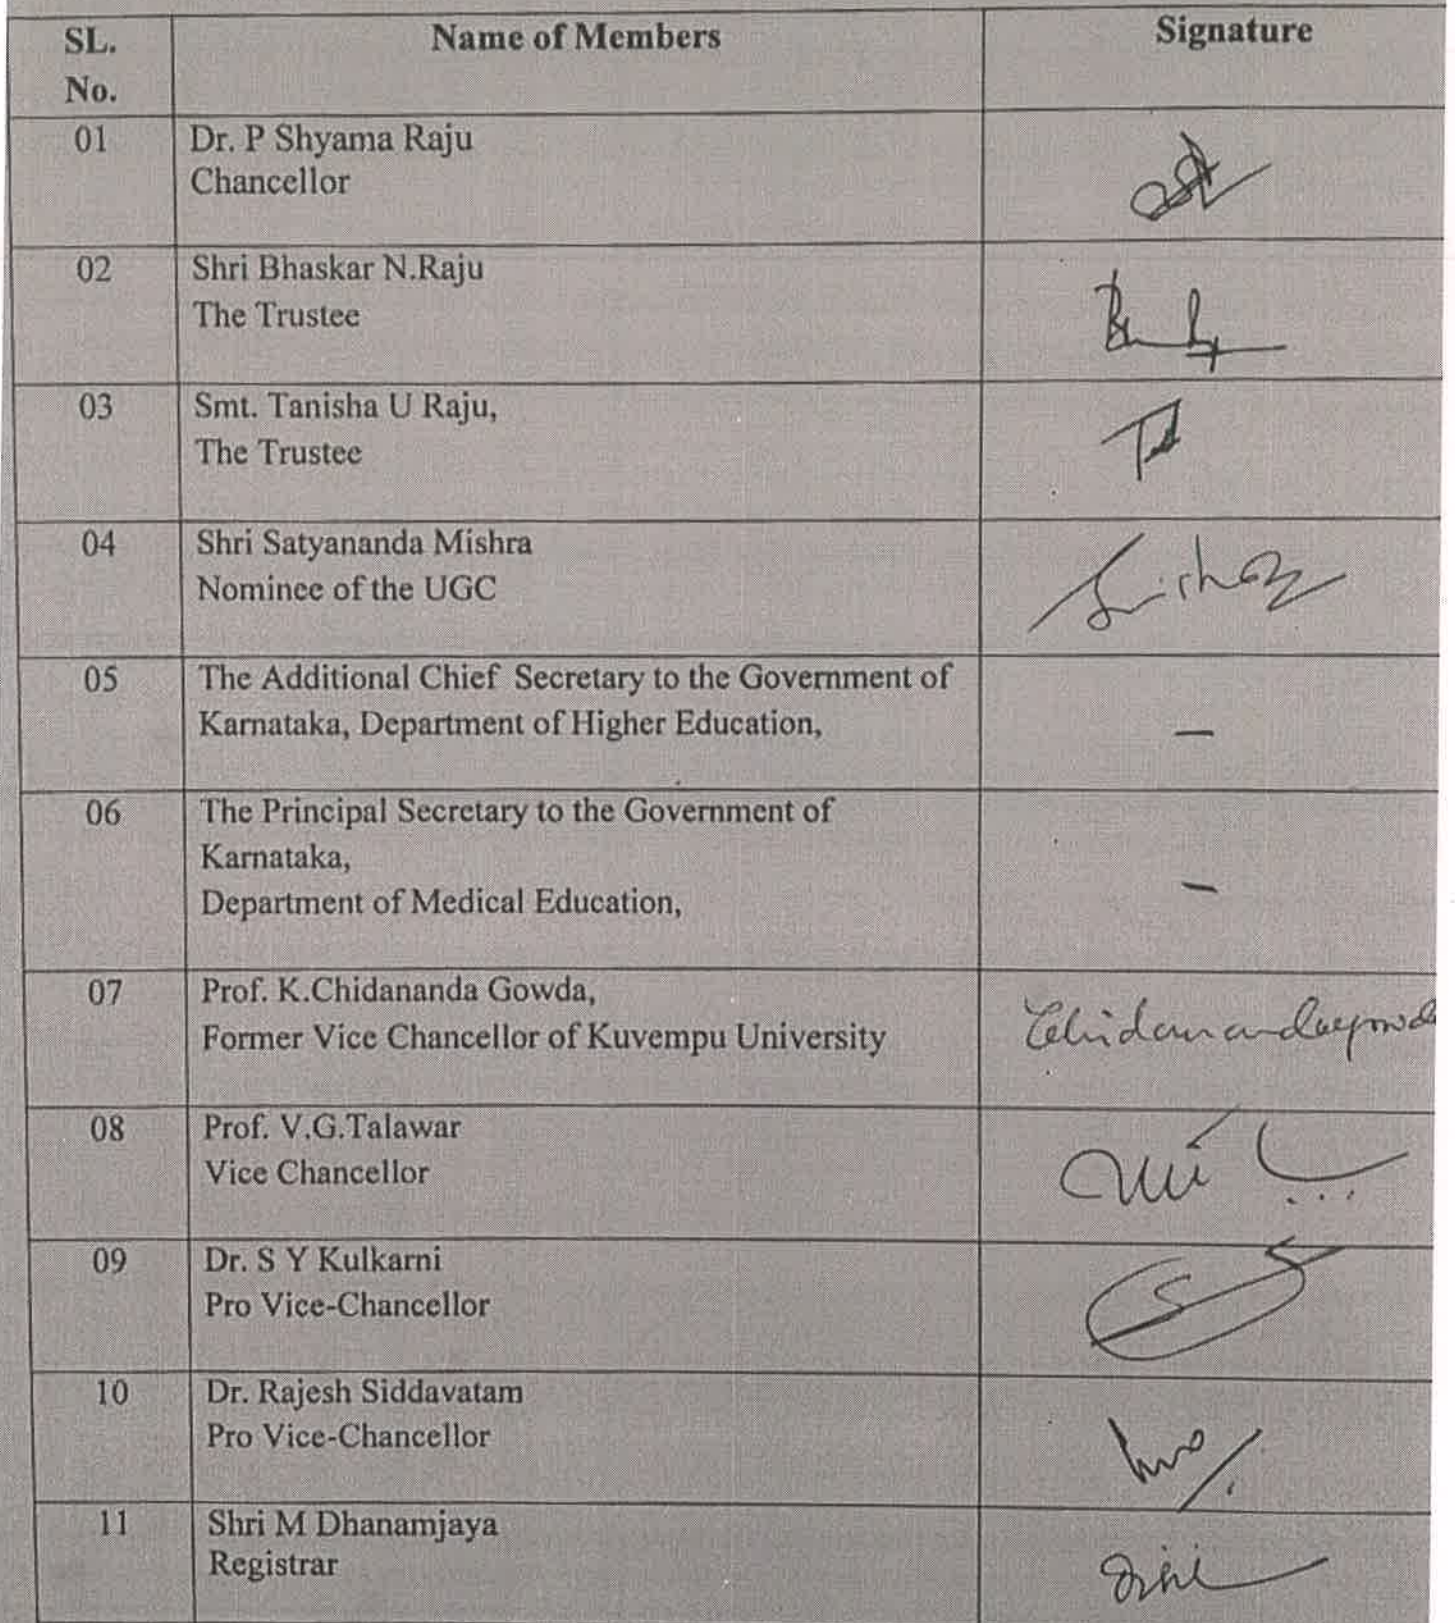 SL. No. Name of Members Signature
01 Dr. P Shyama Raju
Chancellor
02 Shri Bhaskar N.Raju
The Trustee
03 Smt. Tanisha U Raju,
The Trustee
04 Shri Satyananda Mishra
Nominee of the UGC
05 The Additional Chief Secretary to the Government of
Karnataka, Department of Higher Education,
–
06 The Principal Secretary to the Government of
Karnataka,
Department of Medical Education,
–
07 Prof. K.Chidananda Gowda,
Former Vice Chancellor of Kuvempu University
08 Prof. V.G.Talawar
Vice Chancellor
09 Dr. S Y Kulkarni
Pro Vice-Chancellor
10 Dr. Rajesh Siddavatam
Pro Vice-Chancellor
11 Shri M Dhanamjaya
Registrar